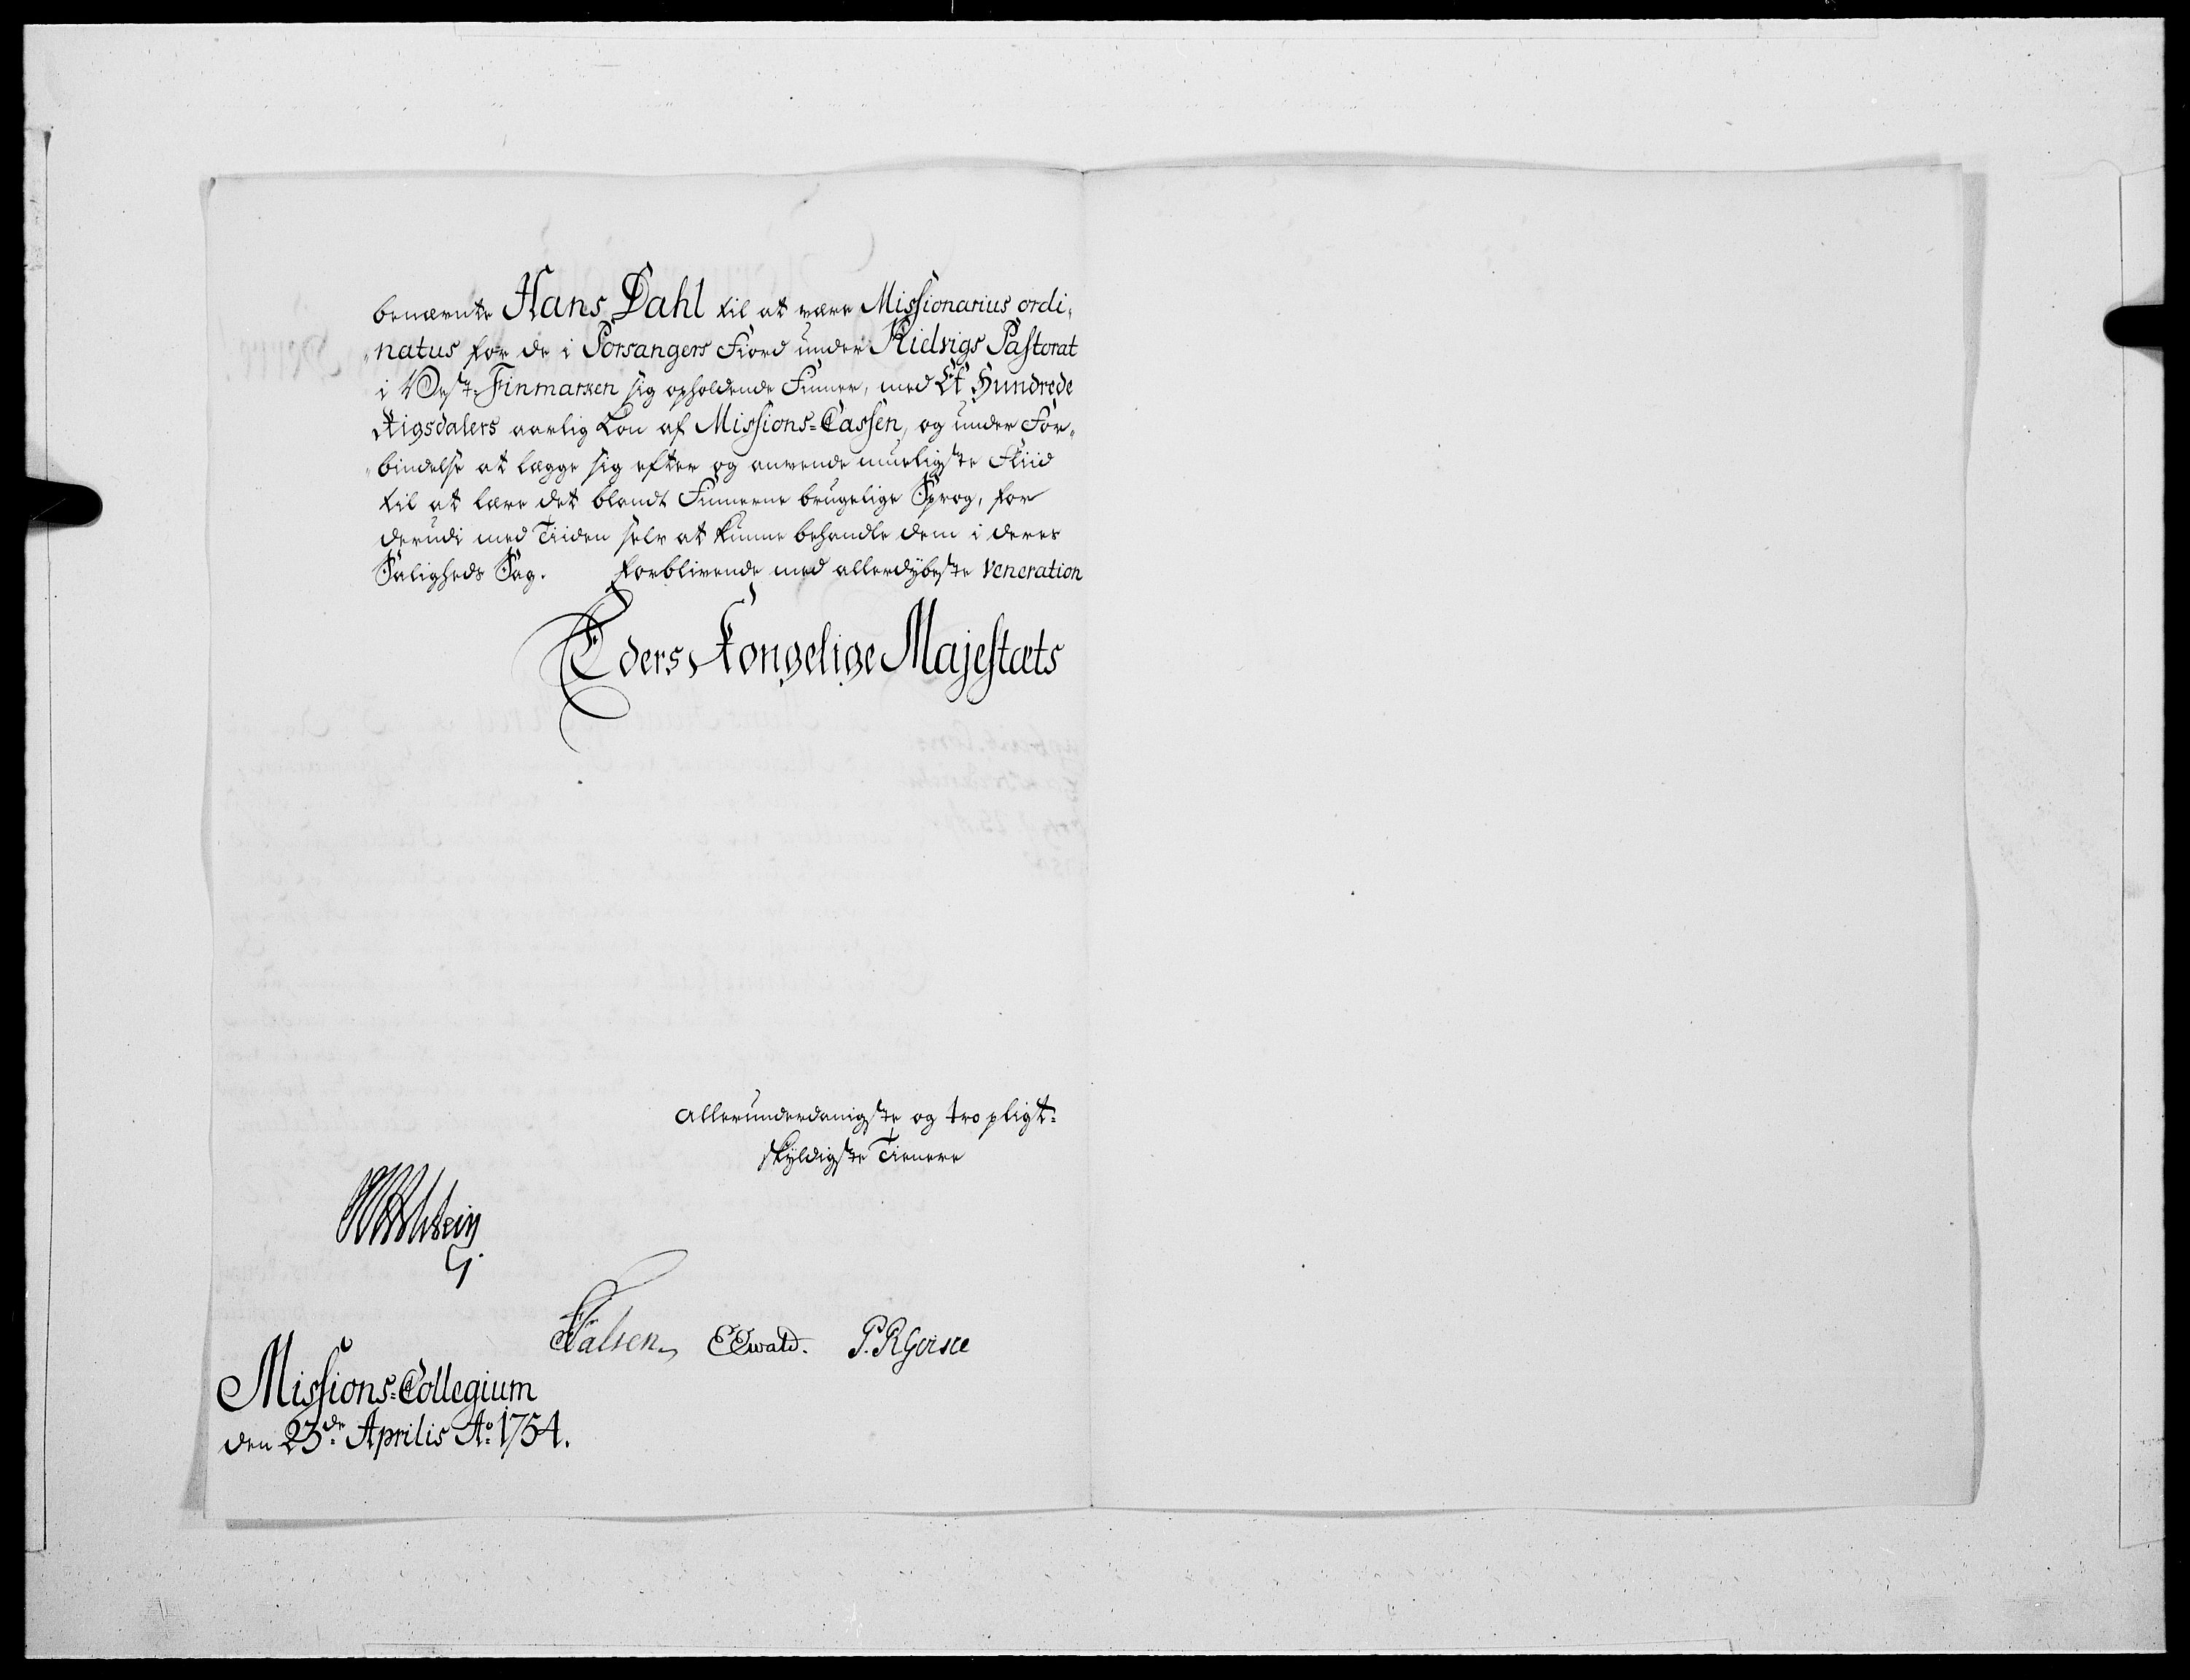 benævnte Hans Dahl til at være Missionarius ordi„
„natus for de i Porsangers Fiord under Kielvigs Pastorat
i West-Finmarken sig opholdende Finner, med Et Hundrede
Rigsdalers aarlig Løn af Missions-Cassen, og under For„
„bindelse at lægge sig efter og anvende mueligste Fliid
til at lære det blandt Finnerne brugelige Sprog, for
derudi med Tiiden selv at kunne behandle dem i deres
Saligheds Sag. Forblivende med allerdybeste Veneration
Eders Kongelige Majestæts
allerunderdanigste og tropligt-
skyldigste Tienere
Holstein
Falsen EEwald.
Missions-Collegium
den 23de Aprilis Ao 1754.